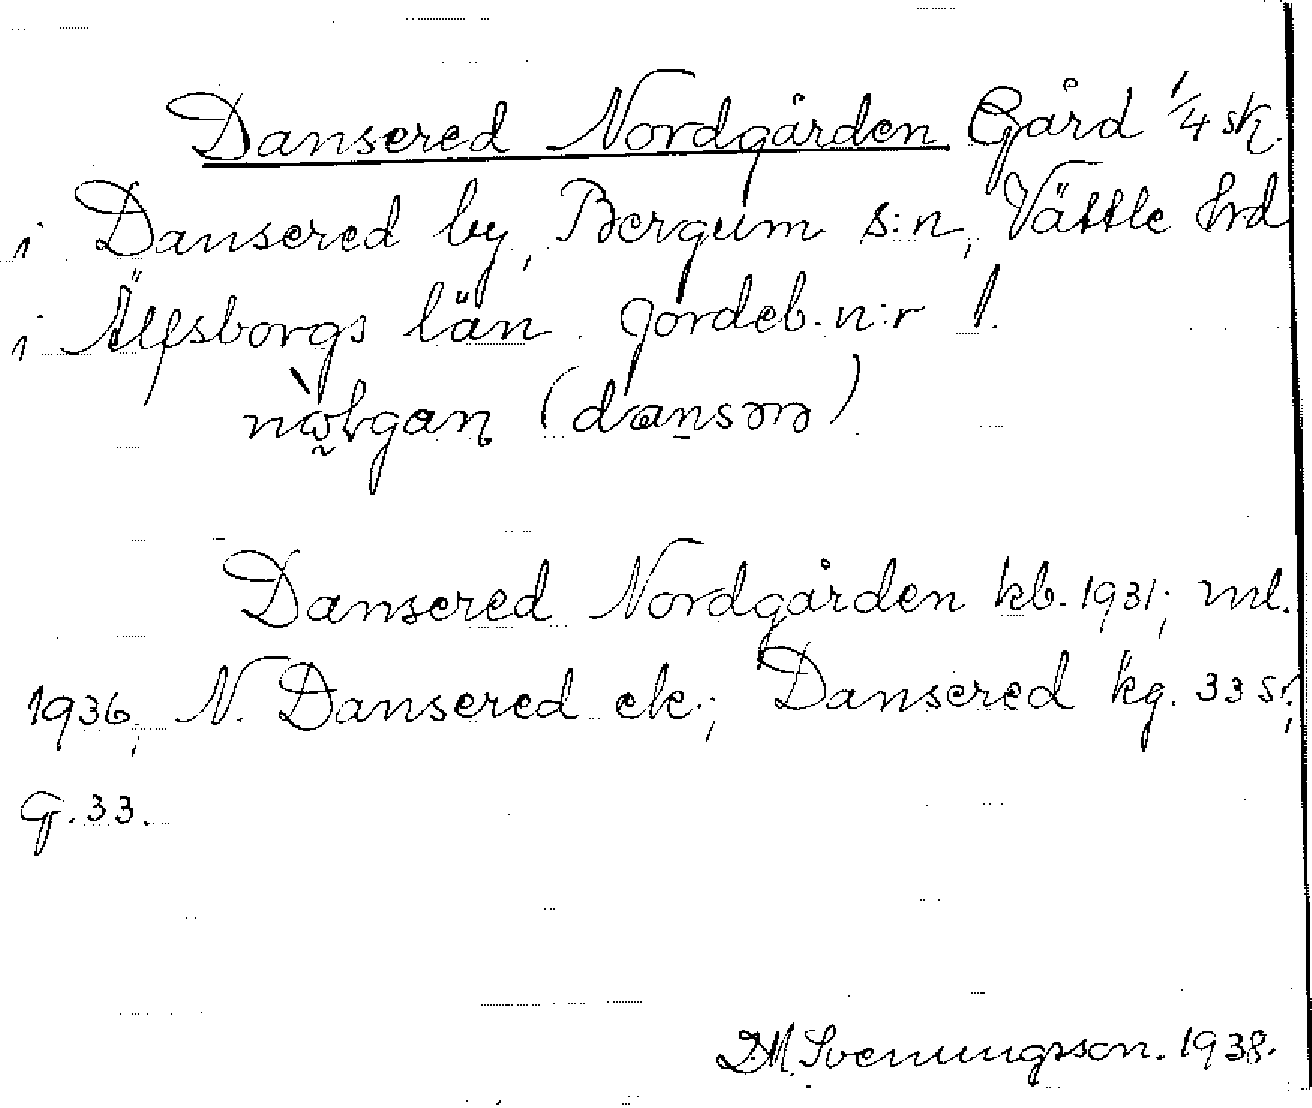 Dansered Nordgården Gård 1/4 sk.
i Dansered by, Bergum s:n, Vättle hrd
i Älfsborgs län. Jordeb. n:r 1.
Dansered Nordgården kb. 1931; ml.
1936; N. Dansered ek.; Dansered kg. 33 s;
G. 33.
D.M. Svenungsson. 1938.